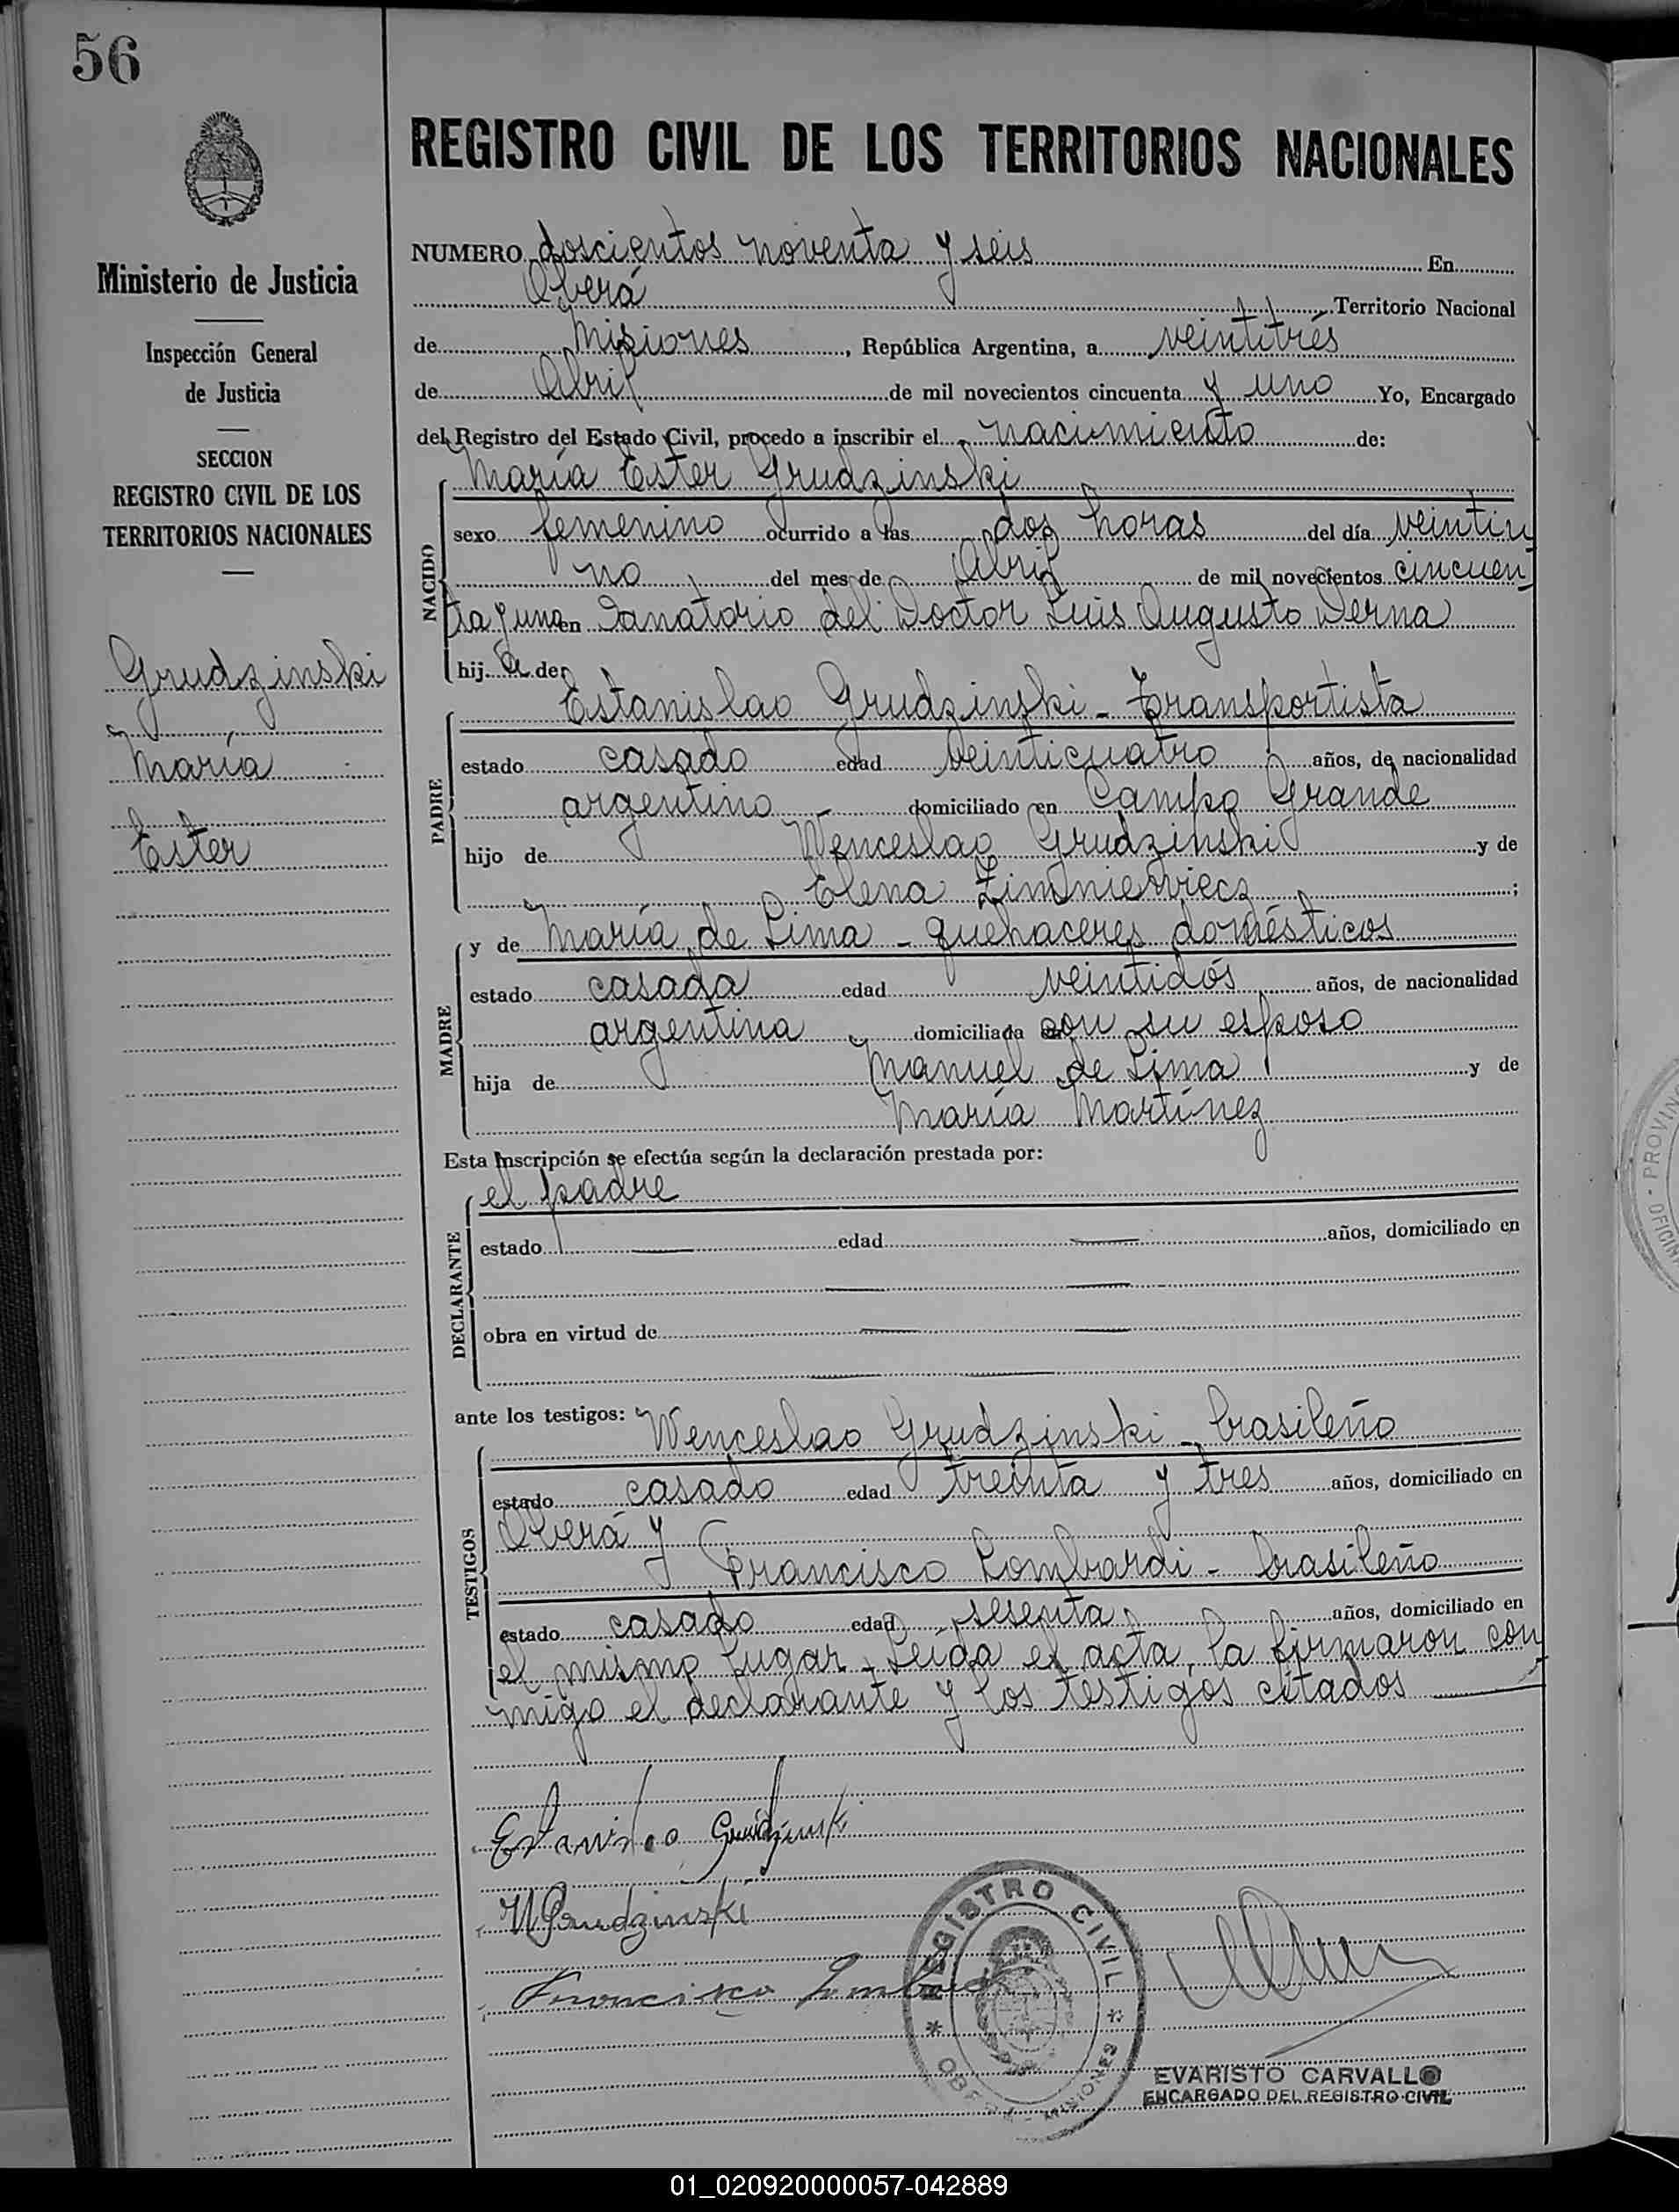 56
Ministerio de Justicia
Inspección General
de Justicia
SECCION
REGISTRO CIVIL DE LOS
TERRITORIOS NACIONALES
Grudzinski
María
Ester
REGISTRO CIVIL DE LOS TERRITORIOS NACIONALES
NUMERO doscientos noventa y seis En
Oberá Territorio Nacional
de Misiones, República Argentina, a veintitrés
de Abril de mil novecientos cincuenta y uno Yo, Encargado
del Registro del Estado Civil, procedo a inscribir el nacimiento de:
NACIDO
María Ester Grudzinski
sexo femenino ocurrido a las dos horas del día veintiu
no del mes de Abril de mil novecientos cincuen
ta y uno en Sanatorio del Doctor Luis Augusto Derna
hij a de
PADRE
Estanislao Grudzinski - transportista
estado casado edad veinticuatro años, de nacionalidad
argentino domiciliado en Campo Grande
hijo de Wenceslao Grudzinski y de
Elena Zimniewiecz ;
MADRE
y de María de Lima - quehaceres domésticos
estado casada edad veintidós años, de nacionalidad
argentina domiciliada con su esposo
hija de Manuel de Lima y de
María Martínez
Esta inscripción se efectúa según la declaración prestada por:
DECLARANTE
el padre
estado edad años, domiciliado en
obra en virtud de
ante los testigos:
TESTIGOS
Wenceslao Grudzinski - brasileño
estado casado edad treinta y tres años, domiciliado en
Oberá y
Francisco Lombardi - brasileño
estado casado edad sesenta años, domiciliado en
el mismo lugar - Leída el acta, la firmaron con
migo el declarante y los testigos citados
Estanislao Grudzinski
W Grudzinski
Francisco Lombardi
REGISTRO CIVIL
OBERA - MISIONES
EVARISTO CARVALLO
ENCARGADO DEL REGISTRO CIVIL
PROVIN
OFICIN
01_020920000057-042889